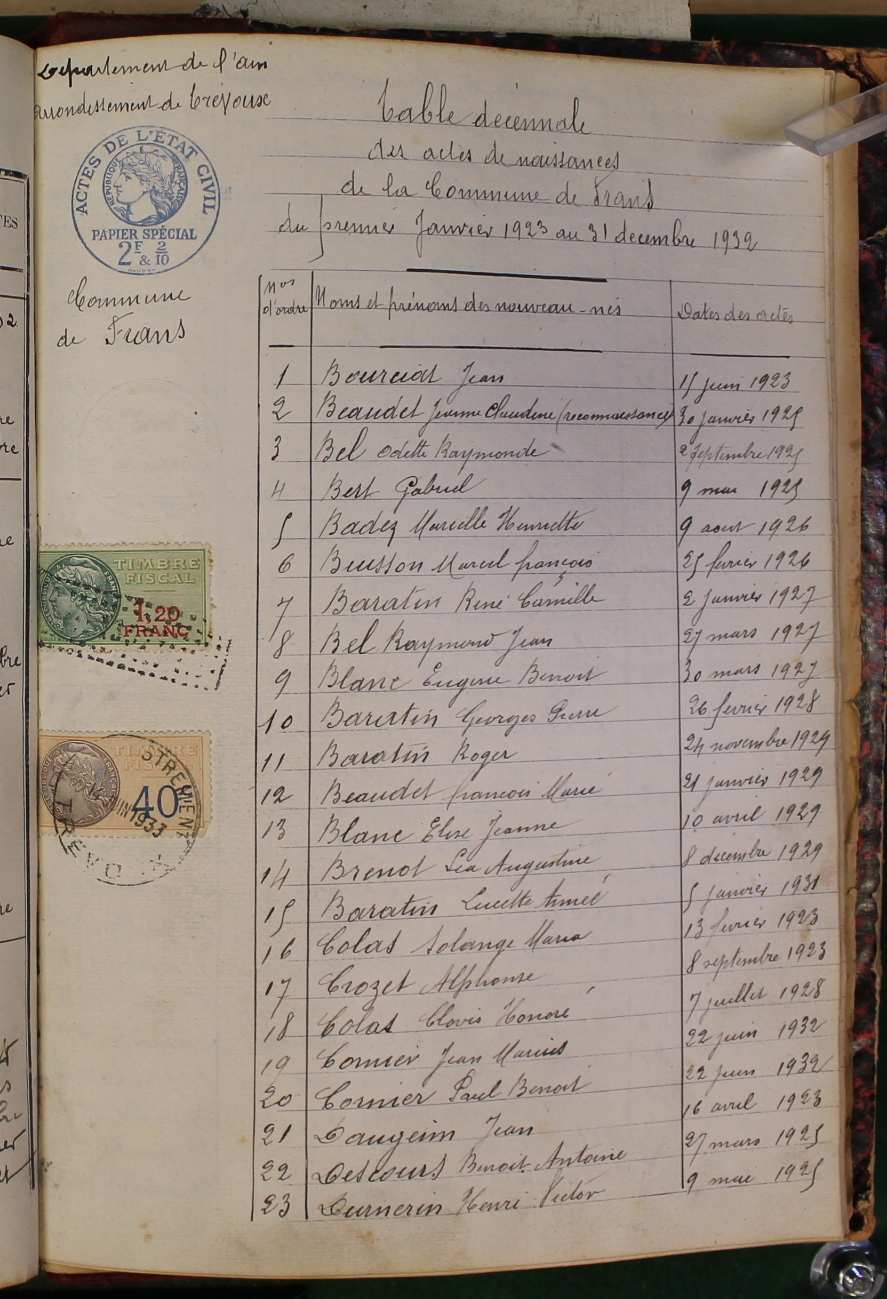 Département de l'ain
arrondissement de Trévoux
ACTES DE L'ÉTAT CIVIL
RÉPUBLIQUE FRANÇAISE
PAPIER SPÉCIAL
2F & 2/10
Commune
de Frans
TIMBRE
FISCAL
1,20
FRANC
TIMBRE
40
JUIN 1933
Table décennale
des actes de naissances
de la Commune de Frans
du premier Janvier 1923 au 31 decembre 1932
Nos d'ordre Noms et prénoms des nouveau-nés Dates des actes
1 Bourciat Jean 15 juin 1923
2 Beaudet Jeanne Claudine (reconnaissance) 30 janvier 1925
3 Bel Odette Raymonde 2 septembre 1925
4 Bert Gabriel 9 mai 1925
5 Badez Marcelle Henriette 9 aout 1926
6 Buisson Marcel françois 25 fevrier 1926
7 Baratin René Camille 2 janvier 1927
8 Bel Raymond Jean 27 mars 1927
9 Blanc Eugene Benoit 30 mars 1927
10 Baratin Georges Pierre 26 fevrier 1928
11 Baratin Roger 24 novembre 1929
12 Beaudet françois Marie 21 janvier 1929
13 Blanc Elise Jeanne 10 avril 1929
14 Brenot Léa Augustine 8 décembre 1929
15 Baratin Lucette Aimeé 5 janvier 1931
16 Colas Solange Maria 13 fevrier 1923
17 Crozet Alphonse 8 septembre 1923
18 Colas Clovis Honoré 7 juillet 1928
19 Cornier Jean Marius 22 juin 1932
20 Cornier Paul Benoit 22 juin 1932
21 Daugein Jean 16 avril 1923
22 Descours Benoit Antoine 27 mars 1925
23 Durnerin Henri Victor 9 mai 1925